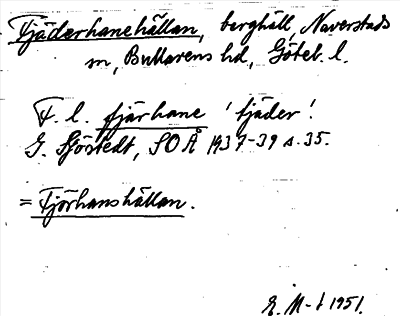 Tjäderhanehällan, berghäll, Naverstads
sn, Bullarens hd, Göteb. l.
F. l. fjärhane 'tjäder'.
G. Sjöstedt, SOÅ 1937-39 s. 35.
= Tjörhanshällan.
E. M-t 1951.